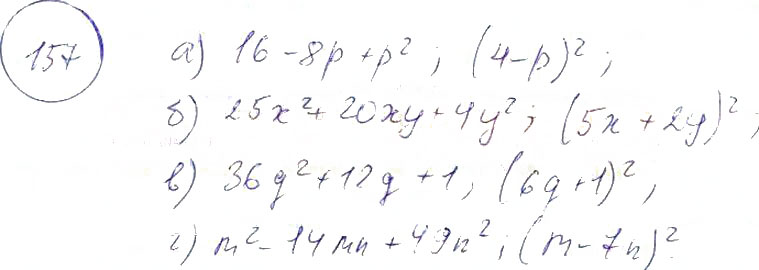 157 а) 16 - 8p + p²; (4-p)²;
б) 25x² + 20xy + 4y²; (5x + 2y)²;
в) 36q² + 12q + 1; (6q + 1)²;
г) m² - 14mn + 49n²; (m - 7n)²